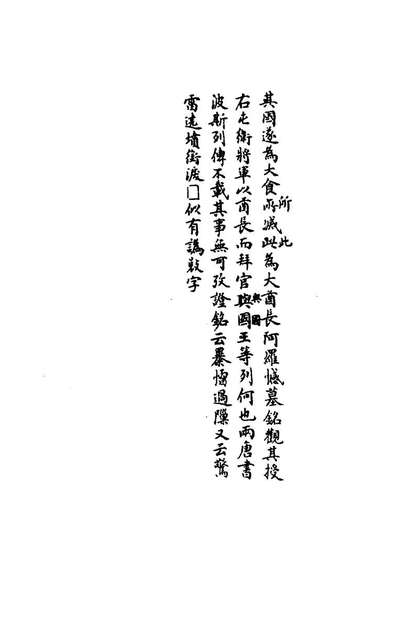 所此
其國遂為大食所滅此為大酋長阿羅憾墓銘觀其授
與國
右屯衛將軍以酋長而拜官與國王等列何也兩唐書
波斯列傳不載其事無可攷證銘云暴憎過隟又云驚
雷遶墳銜淚□似有譌敚字